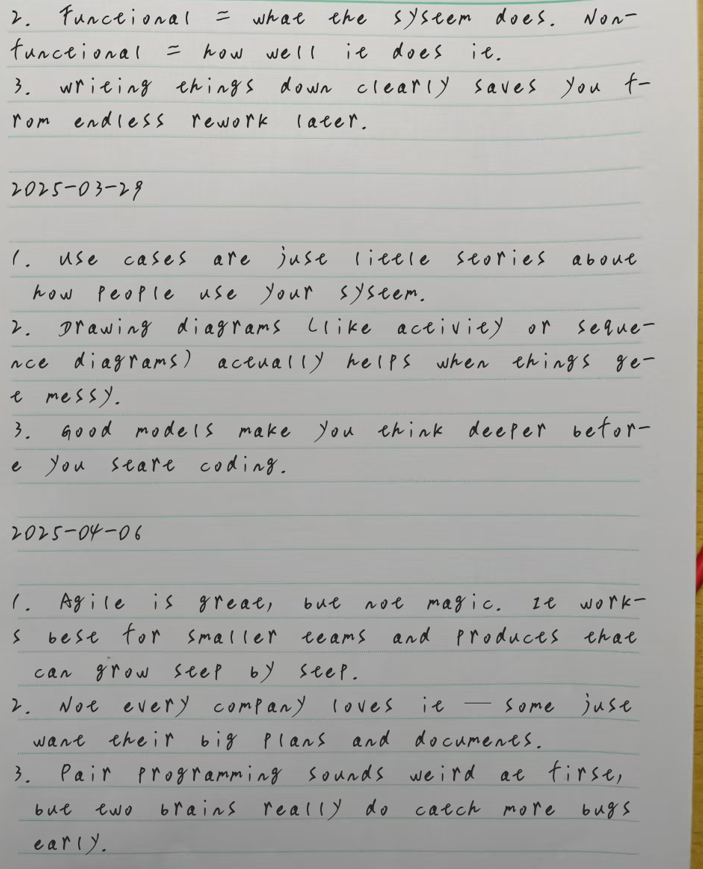 2. Functional = what the system does. Non-
functional = how well it does it.
3. Writing things down clearly saves you f-
rom endless rework later.
2025-03-29
1. Use cases are just little stories about
how people use your system.
2. Drawing diagrams (like activity or seque-
nce diagrams) actually helps when things ge-
t messy.
3. Good models make you think deeper befor-
e you start coding.
2025-04-06
1. Agile is great, but not magic. It work-
s best for smaller teams and products that
can grow step by step.
2. Not every company loves it — some just
want their big plans and documents.
3. Pair programming sounds weird at first,
but two brains really do catch more bugs
early.